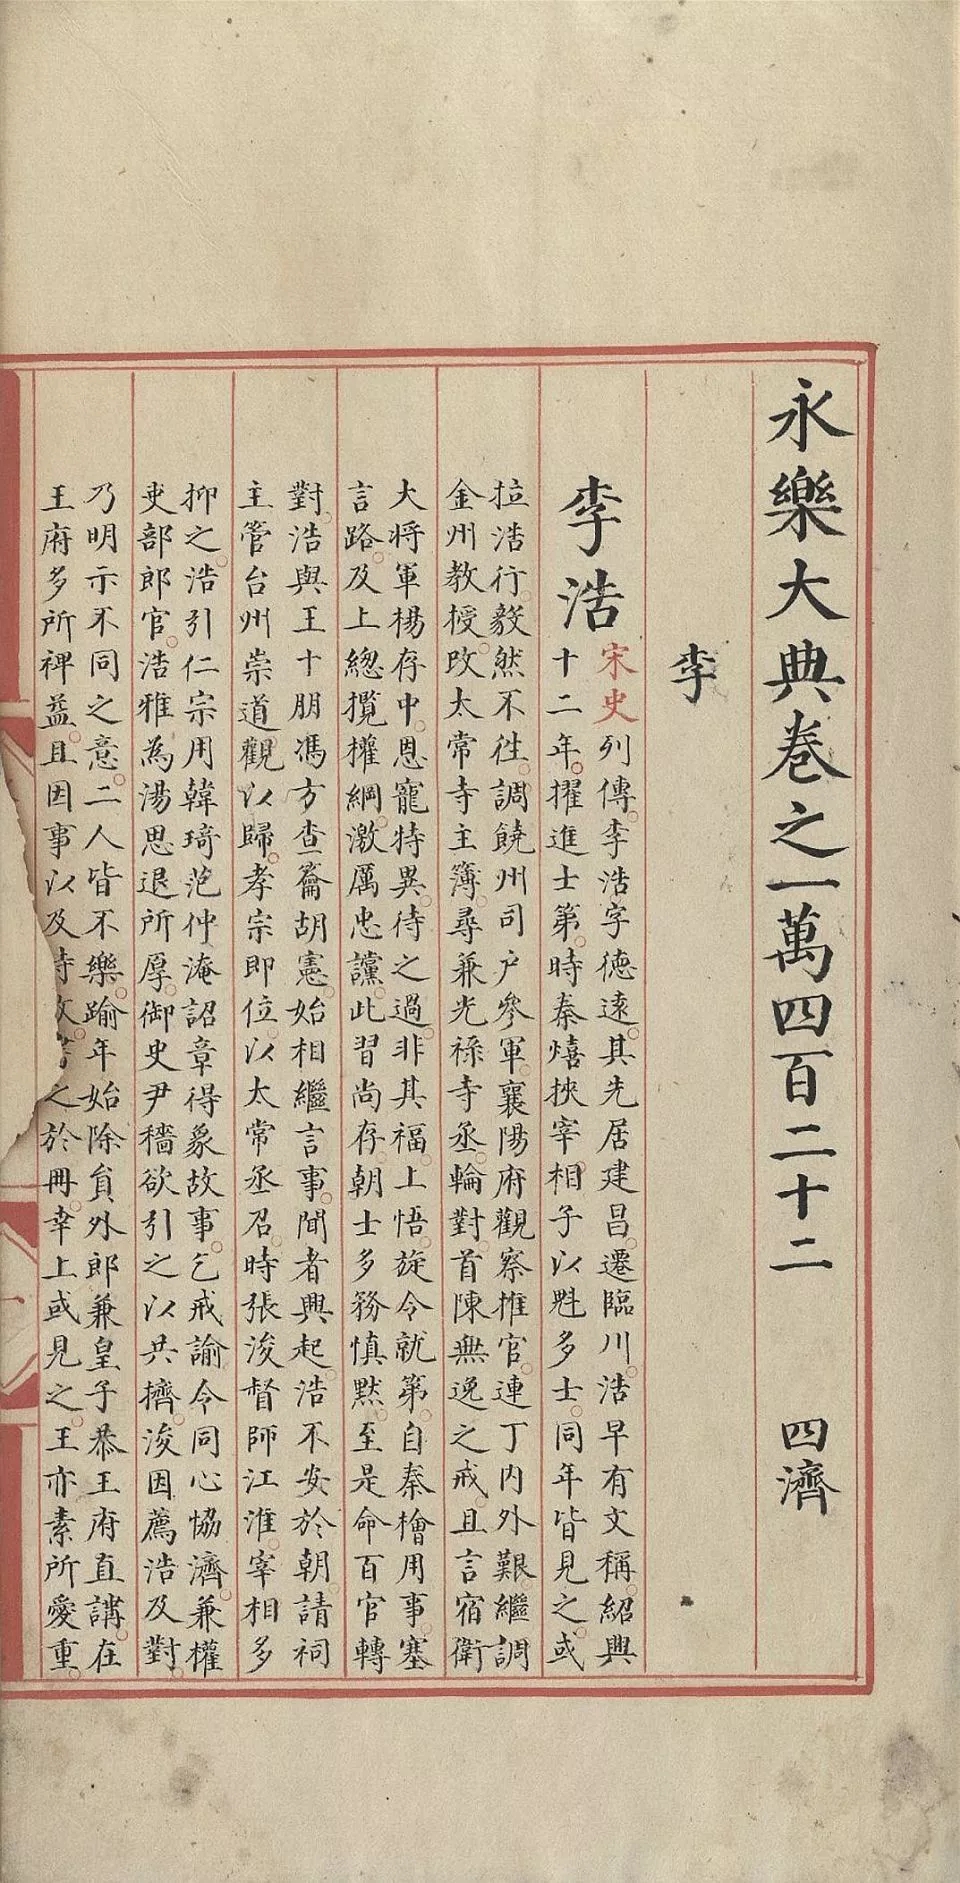 永樂大典卷之一萬四百二十二 四濟
李
李浩
宋史列傳李浩字德遠其先居建昌遷臨川浩早有文稱紹興
十二年擢進士第時秦熺挾宰相子以魁多士同年皆見之或
拉浩行毅然不往調饒州司户參軍襄陽府觀察推官連丁内外艱繼調
金州教授改太常寺主簿尋兼光禄寺丞輪對首陳無逸之戒且言宿衛
大將軍楊存中恩寵特異待之過非其福上悟旋令就第自秦檜用事塞
言路及上緫攬權綱激厲忠讜此習尚存朝士多務慎默至是命百官轉
對浩與王十朋馮方查籥胡憲始相繼言事間者興起浩不安於朝請祠
主管台州崇道觀以歸孝宗即位以太常丞召時張浚督師江淮宰相多
抑之浩引仁宗用韓琦范仲淹詔章得象故事乞戒諭令同心協濟兼權
吏部郎官浩雅為湯思退所厚御史尹穡欲引之以共擠浚因薦浩及對
乃明示不同之意二人皆不樂踰年始除貟外郎兼皇子恭王府直講在
王府多所裨益且因事以及之於冊幸上或見之王亦素所愛重